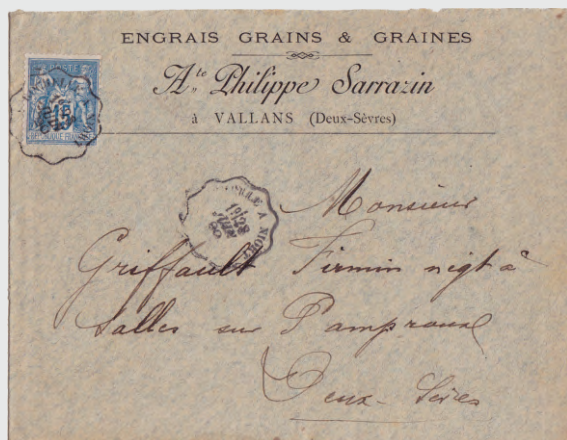 ENGRAIS GRAINS & GRAINES
Ate Philippe Sarrazin
à VALLANS (Deux-Sèvres)
A NIORT
28
JUIN
Monsieur
Griffault Firmin negt à
Salles sur Pamproux
Deux-Sèvres